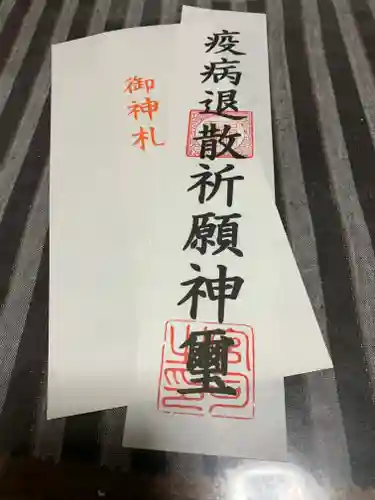 疫病退散祈願神璽
御神札